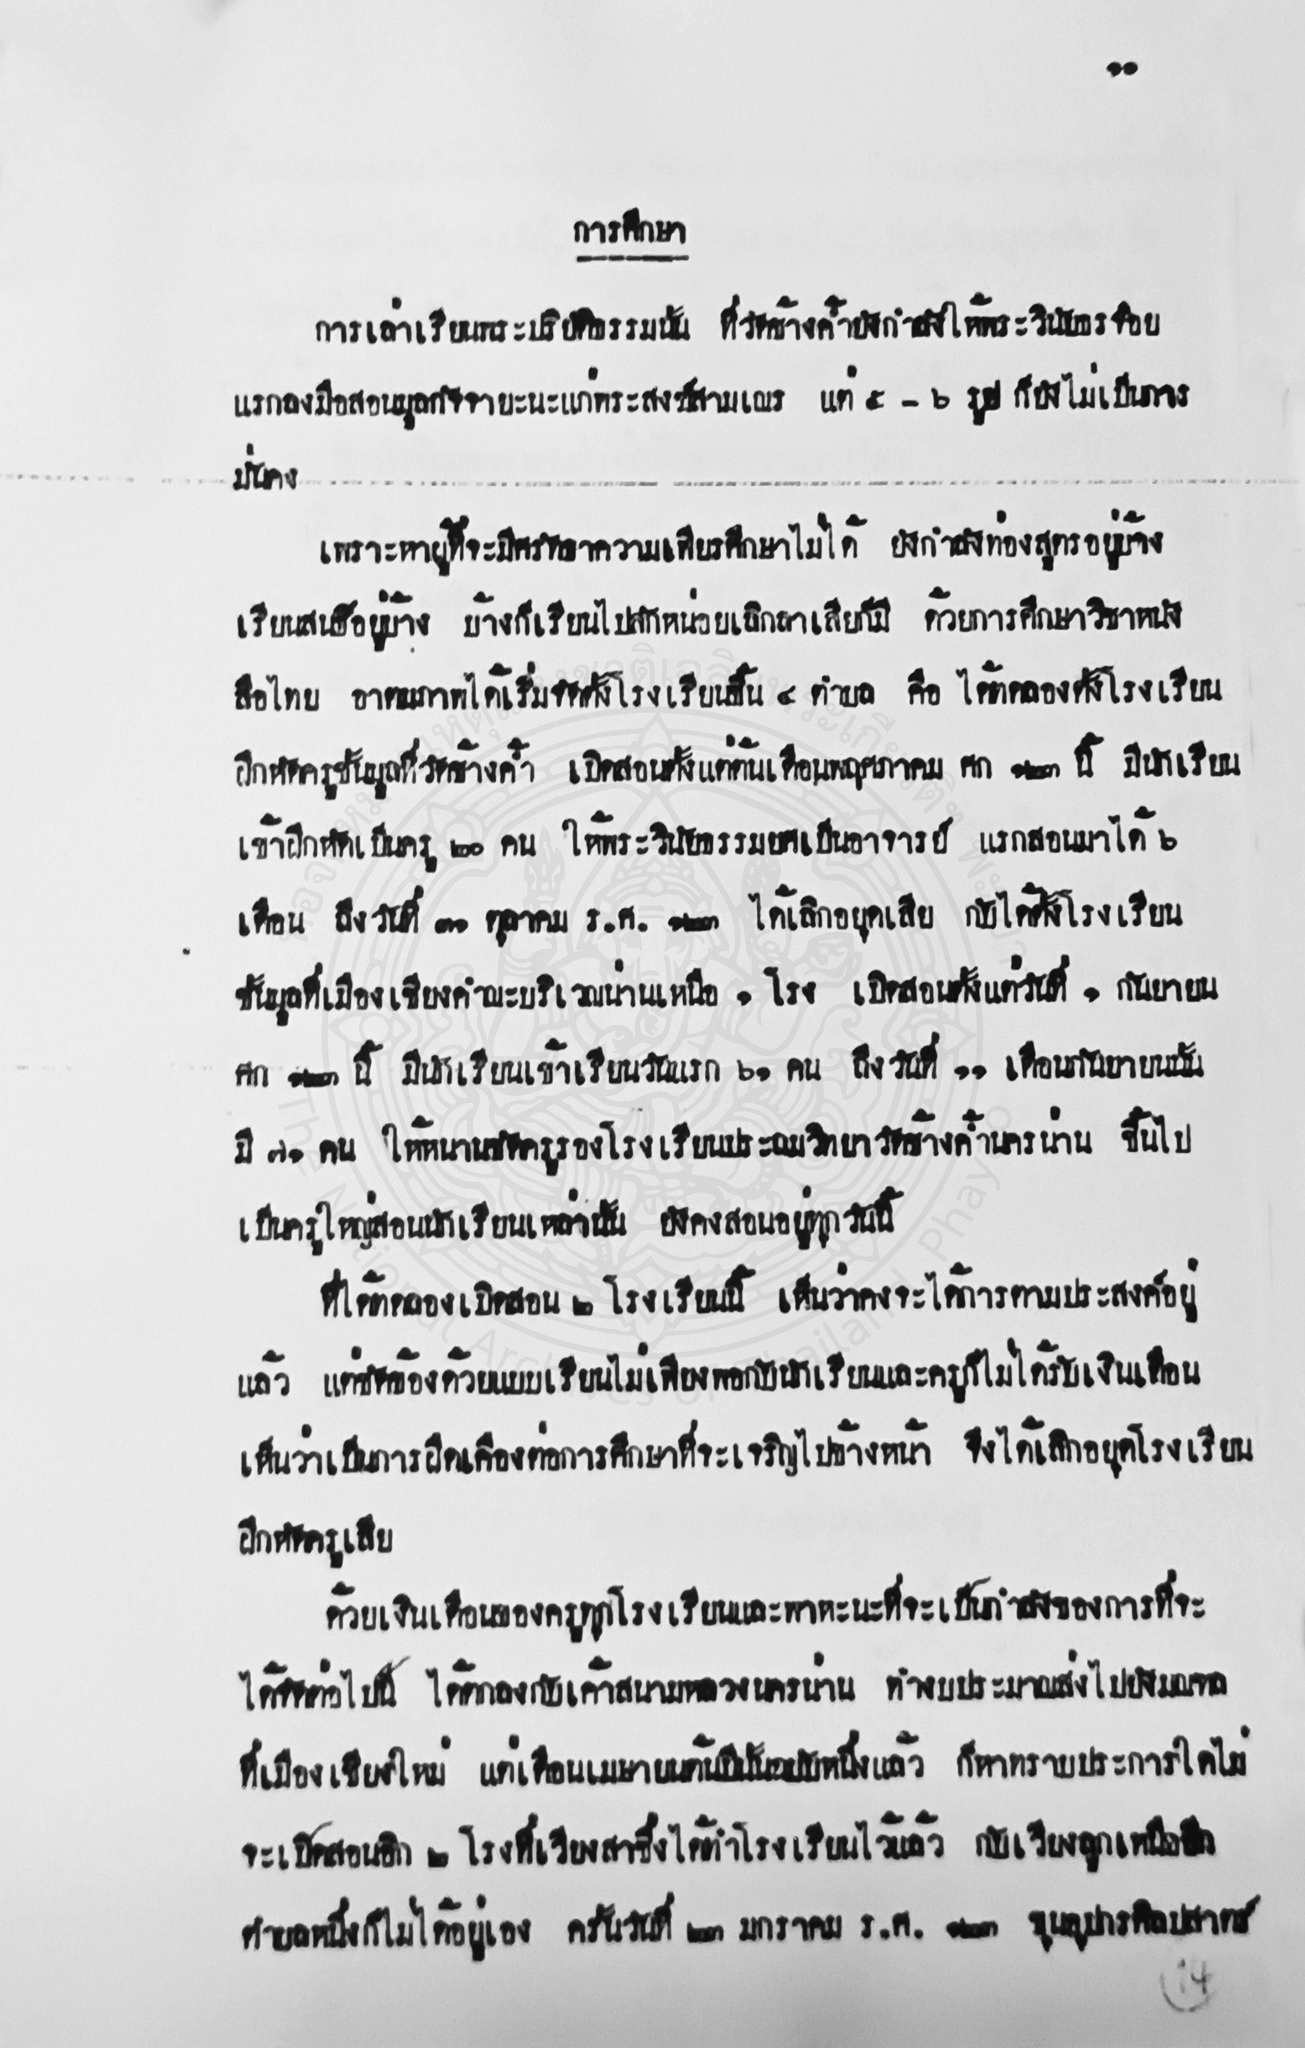 ๑๐
การศึกษา
การเล่าเรียนพระปริยัติธรรมนั้น ที่วัดช้างค้ำยังกำลังให้พระวินัยธรจ๋อย
แรกลงมือสอนมูลกัจจายะนะแก่พระสงฆ์สามเณร แต่ ๕ - ๖ รูป ก็ยังไม่เป็นการ
มั่นคง
เพราะหาผู้ที่จะมีศรัทธาความเพียรศึกษาไม่ได้ ยังกำลังท่องสูตรอยู่บ้าง
เรียนสนธิอยู่บ้าง บ้างก็เรียนไปสักหน่อยเลิกลาเสียก็มี ด้วยการศึกษาวิชาหนัง
สือไทย อาตมภาพได้เริ่มจัดตั้งโรงเรียนขึ้น ๔ ตำบล คือ ได้ทดลองตั้งโรงเรียน
ฝึกหัดครูชั้นมูลที่วัดช้างค้ำ เปิดสอนตั้งแต่ต้นเดือนพฤษภาคม ศก ๑๒๓ นี้ มีนักเรียน
เข้าฝึกหัดเป็นครู ๒๐ คน ให้พระวินัยธรรมยศเป็นอาจารย์ แรกสอนมาได้ ๖
เดือน ถึงวันที่ ๓๑ ตุลาคม ร.ศ. ๑๒๓ ได้เลิกอยุดเสีย กับได้ตั้งโรงเรียน
ชั้นมูลที่เมืองเชียงคำณะบริเวณน่านเหนือ ๑ โรง เปิดสอนตั้งแต่วันที่ ๑ กันยายน
ศก ๑๒๓ นี้ มีนักเรียนเข้าเรียนวันแรก ๖๑ คน ถึงวันที่ ๑๑ เดือนกันยายนนั้น
มี ๗๑ คน ให้หนานขัดครูรองโรงเรียนประถมวิทยาวัดช้างค้ำนครน่าน ขึ้นไป
เป็นครูใหญ่สอนนักเรียนเหล่านั้น ยังคงสอนอยู่ทุกวันนี้
ที่ได้ทดลองเปิดสอน ๒ โรงเรียนนี้ เห็นว่าคงจะได้การตามประสงค์อยู่
แล้ว แต่ขัดข้องด้วยแบบเรียนไม่เพียงพอกับนักเรียนและครูก็ไม่ได้รับเงินเดือน
เห็นว่าเป็นการฝืดเคืองต่อการศึกษาที่จะเจริญไปข้างหน้า จึงได้เลิกอยุดโรงเรียน
ฝึกหัดครูเสีย
ด้วยเงินเดือนของครูทุกโรงเรียนและพาหะนะที่จะเป็นกำลังของการที่จะ
ได้จัดต่อไปนี้ ได้ตกลงกับเค้าสนามหลวงนครน่าน ทำงบประมาณส่งไปยังมณฑล
ที่เมืองเชียงใหม่ แต่เดือนเมษายนต้นปีนั้นฉบับหนึ่งแล้ว ก็หาทราบประการใดไม่
จะเปิดสอนอีก ๒ โรงที่เวียงสาซึ่งได้ทำโรงเรียนไว้แล้ว กับเวียงลูกเหนืออีก
ตำบลหนึ่งก็ไม่ได้อยู่เอง ครั้นวันที่ ๒๓ มกราคม ร.ศ. ๑๒๓ ขุนอุปกรศิลปสาตร์
14
หอจดหมายเหตุแห่งชาติเฉลิมพระเกียรติฯ พะเยา
The National Archives of Thailand, Phayao